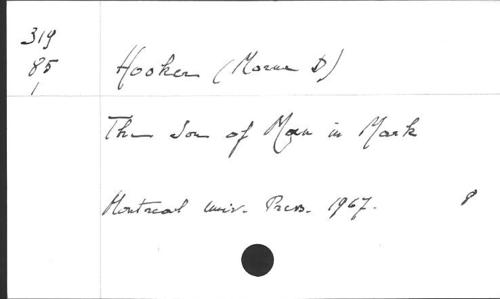 319
85
1
Hooker (Morna D)
The Son of Man in Mark
Montreal Univ. Press. 1967. 8